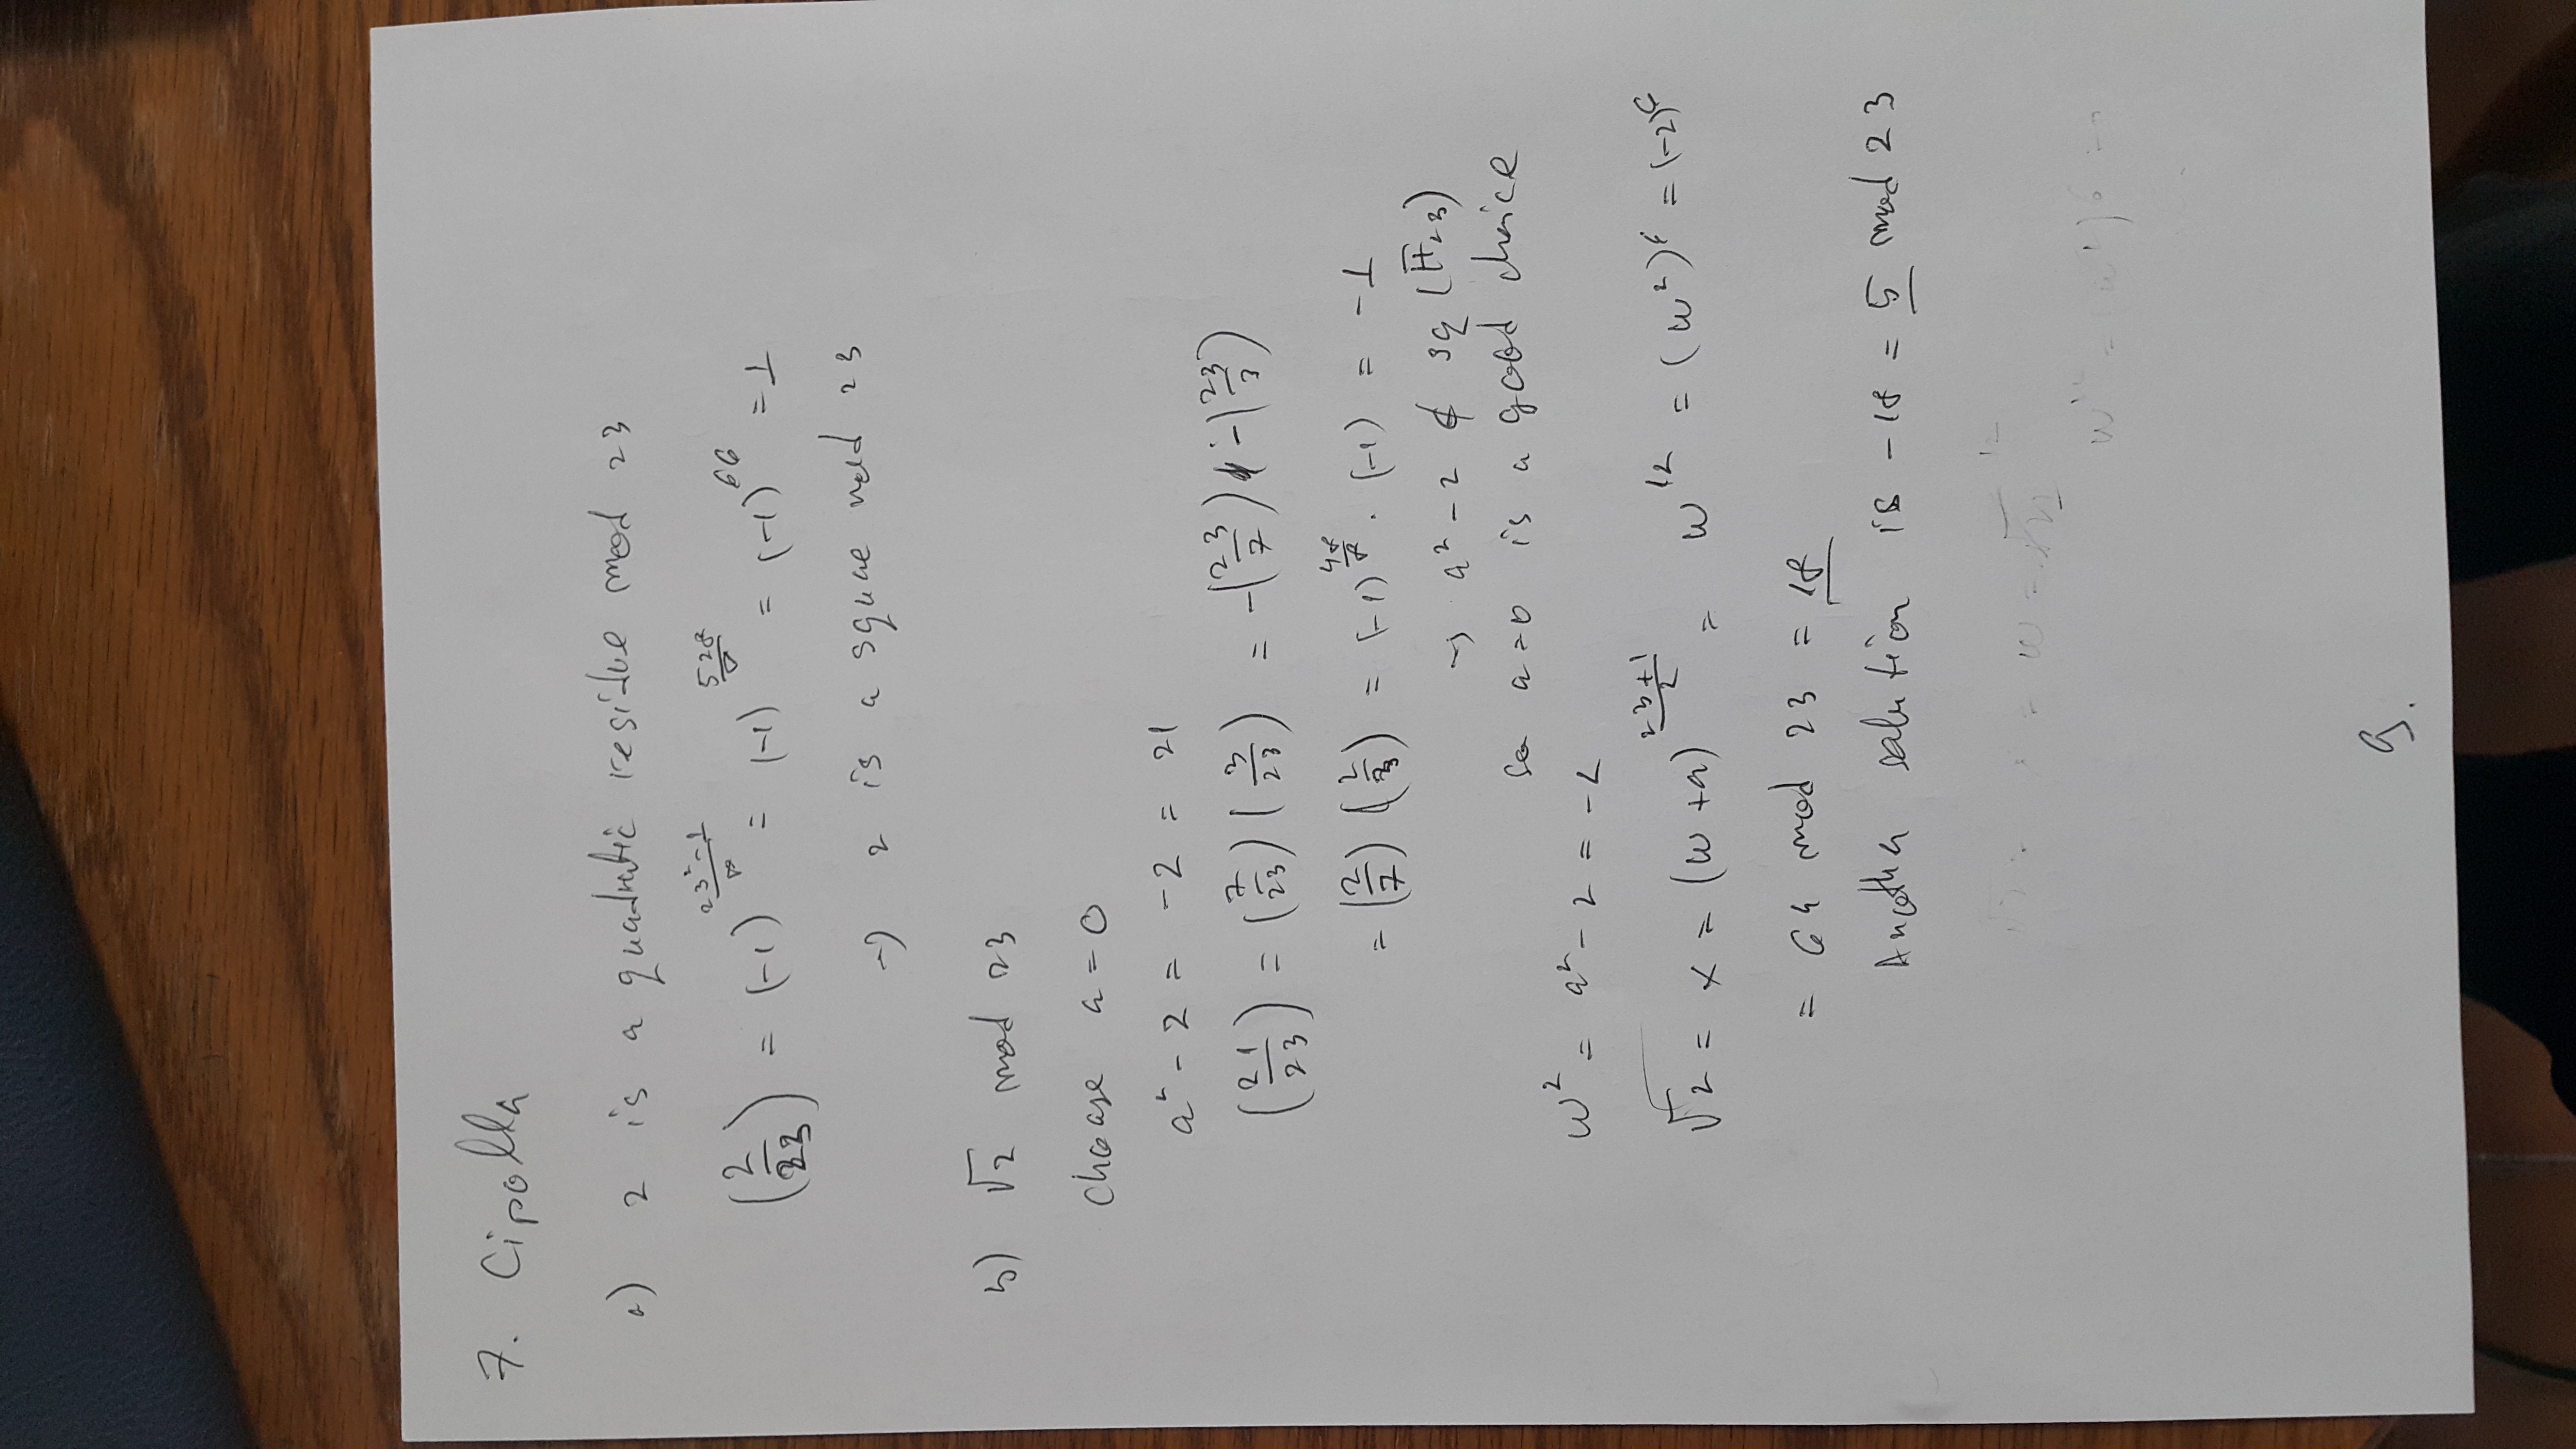 7. Cipolla
a) 2 is a quadratic residue mod 23
(2/23) = (-1)^((23²-1)/8) = (-1)^(528/8) = (-1)^66 = 1
→ 2 is a square mod 23
b) √2 mod 23
choose a = 0
a² - 2 = -2 = 21
(21/23) = (7/23) (3/23) = -(23/7) · -(23/3)
= (2/7) (2/3) = (-1)^(48/8) · (-1) = -1
→ a² - 2 ∉ sq (F₂₃)
so a=0 is a good choice
w² = a² - 2 = -2
√2 = x = (w+a)^((23+1)/2) = w^12 = (w²)^6 = (-2)^6
= 64 mod 23 = 18
Another solution is -18 = 5 mod 23
9.